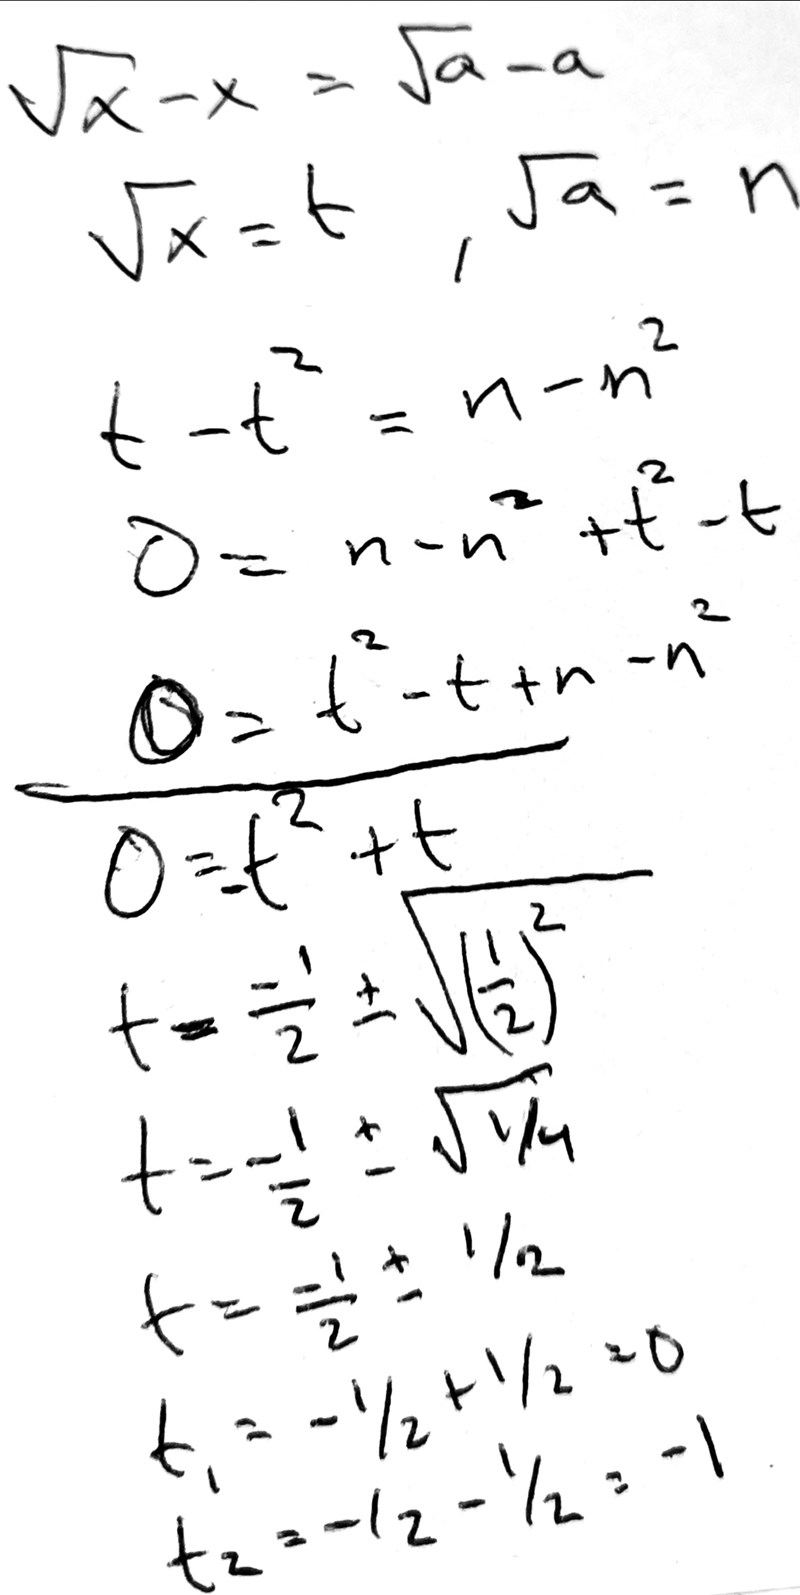 √x - x = √a - a
√x = t , √a = n
t - t² = n - n²
0 = n - n² + t² - t
0 = t² - t + n - n²
0 = -t² + t
t = -1/2 ± √(1/2)²
t = -1/2 ± √1/4
t = -1/2 ± 1/2
t₁ = -1/2 + 1/2 = 0
t₂ = -1/2 - 1/2 = -1